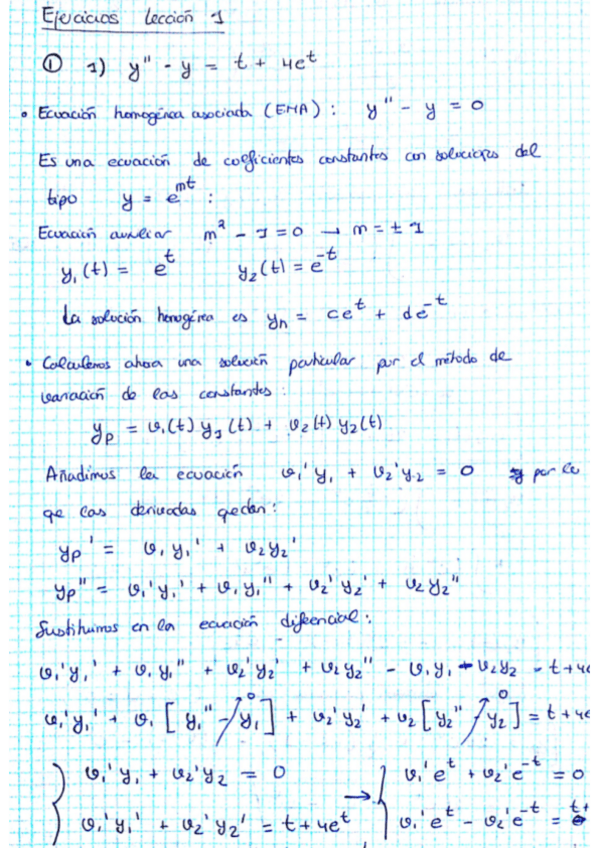 Ejercicios Lección 1
① 1) y'' - y = t + 4e^t
• Ecuación homogénea asociada (EHA): y'' - y = 0
Es una ecuación de coeficientes constantes con soluciones del
tipo y = e^mt :
Ecuación auxiliar m² - 1 = 0 → m = ± 1
y₁(t) = e^t y₂(t) = e^-t
La solución homogénea es yₕ = ce^t + de^-t
• Calculemos ahora una solución particular por el método de
variación de las constantes:
yₚ = v₁(t) y₁(t) + v₂(t) y₂(t)
Añadimos la ecuación v₁'y₁ + v₂'y₂ = 0 por lo
qe las derivadas qedan:
yₚ' = v₁y₁' + v₂y₂'
yₚ'' = v₁'y₁' + v₁y₁'' + v₂'y₂' + v₂y₂''
Sustituimos en la ecuación diferencial:
v₁'y₁' + v₁y₁'' + v₂'y₂' + v₂y₂'' - v₁y₁ - v₂y₂ = t + 4e
v₁'y₁' + v₁[y₁'' - y₁]⁰ + v₂'y₂' + v₂[y₂'' - y₂]⁰ = t + 4e
{ v₁'y₁ + v₂'y₂ = 0 → { v₁'e^t + v₂'e^-t = 0
v₁'y₁' + v₂'y₂' = t + 4e^t v₁'e^t - v₂'e^-t = t+